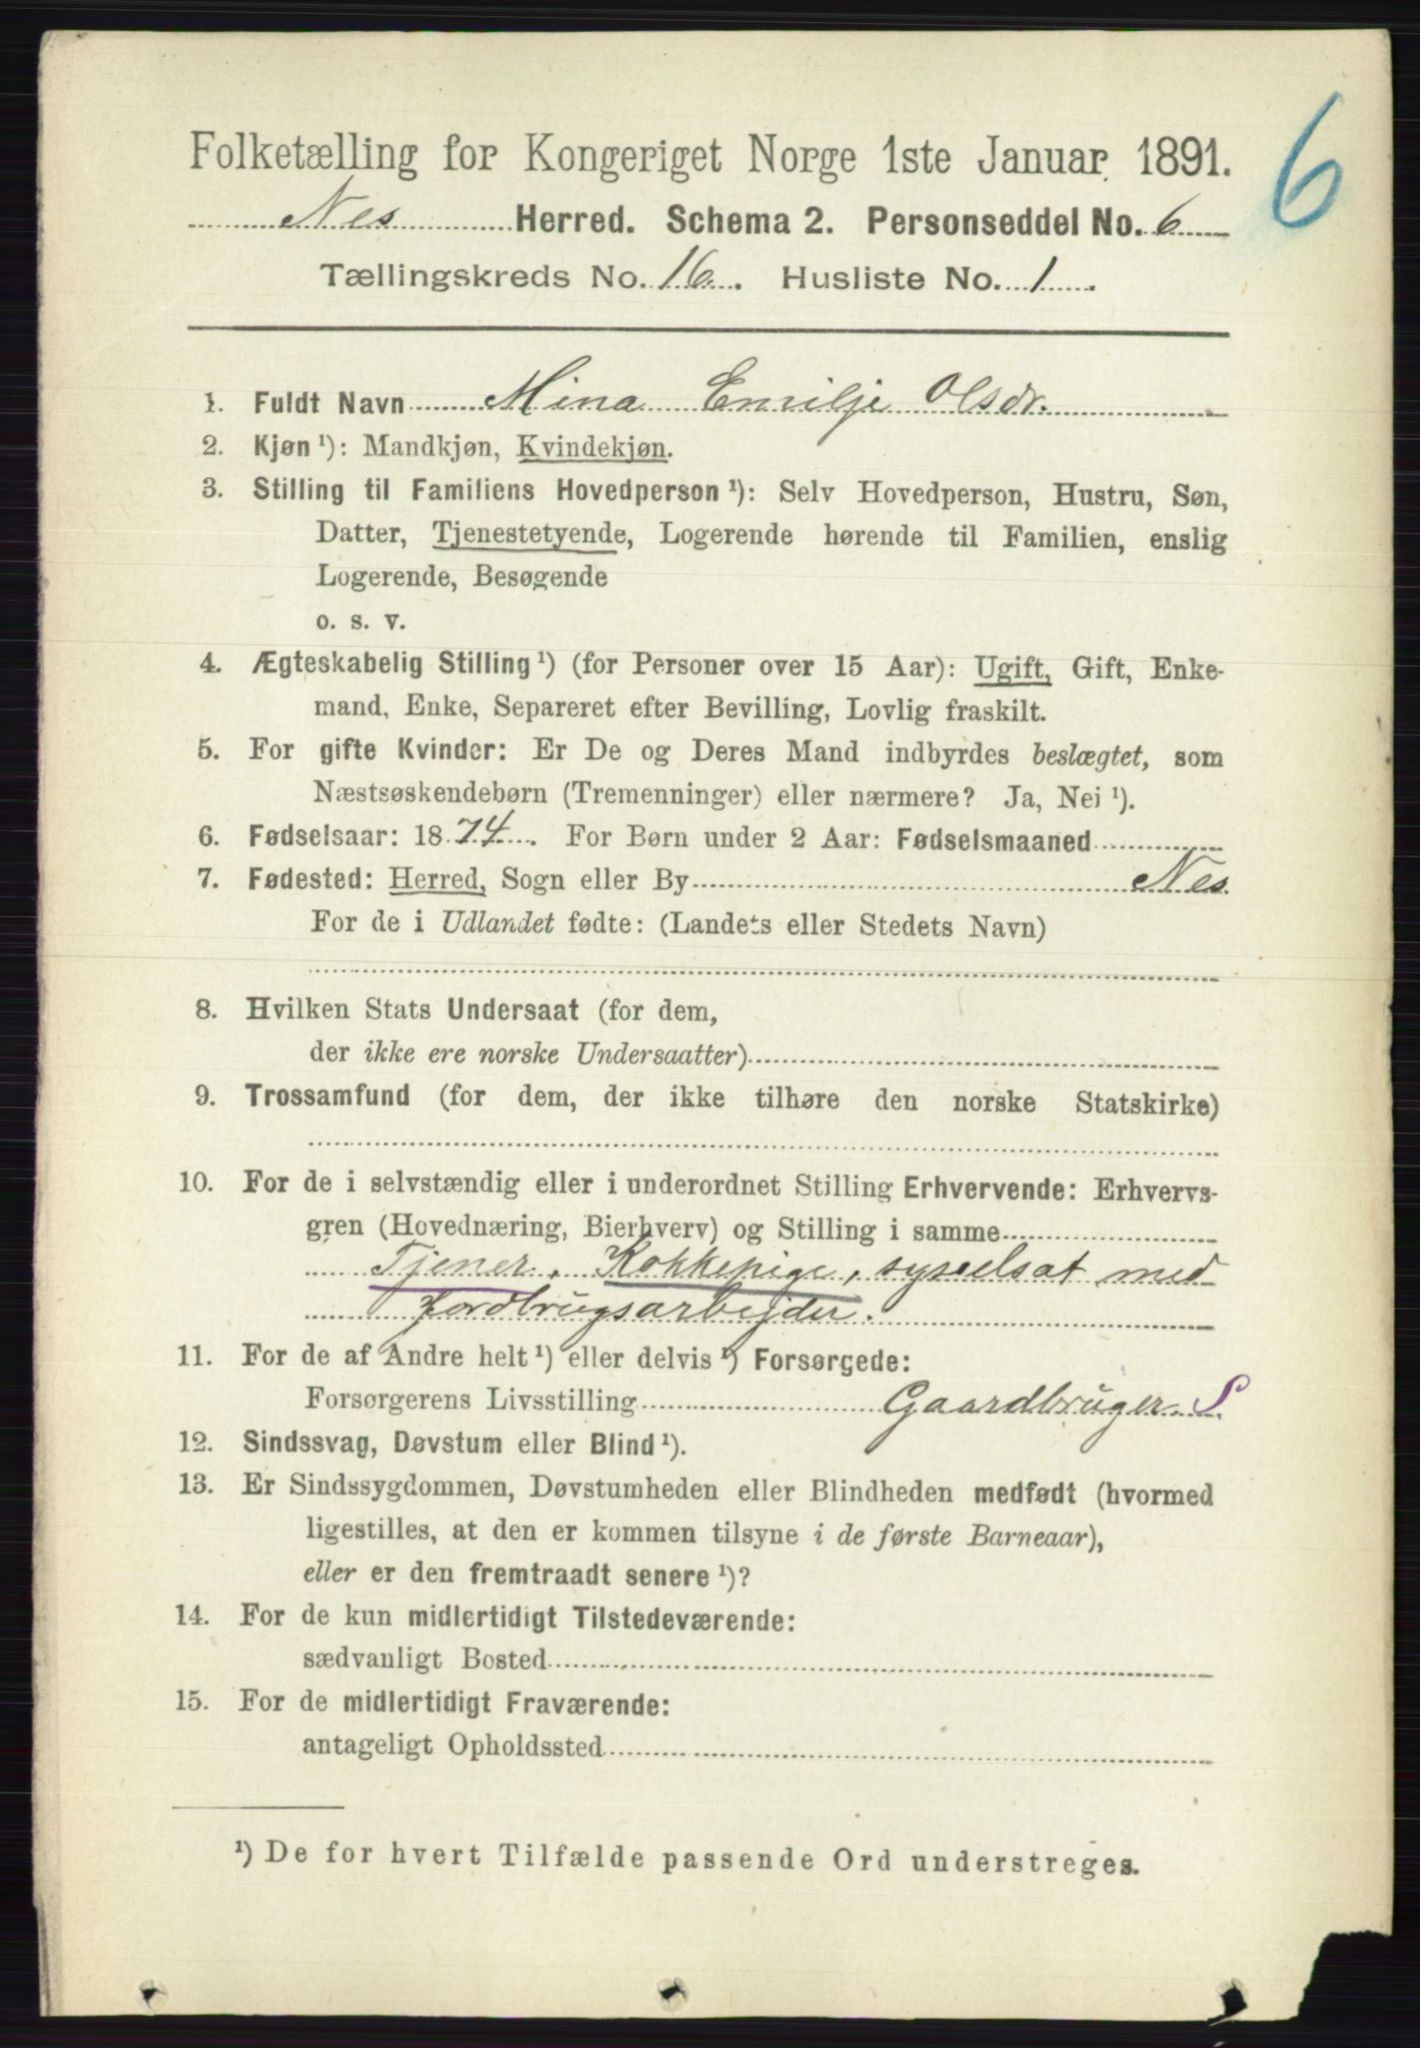 6
Folketælling for Kongeriget Norge 1ste Januar 1891.
Nes Herred. Schema 2. Personseddel No. 6
Tællingskreds No. 16. Husliste No. 1
1. Fuldt Navn Mina Emilje Olsdr.
2. Kjøn ¹): Mandkjøn, Kvindekjøn.
3. Stilling til Familiens Hovedperson ¹): Selv Hovedperson, Hustru, Søn,
Datter, Tjenestetyende, Logerende hørende til Familien, enslig
Logerende, Besøgende
o. s. v.
4. Ægteskabelig Stilling ¹) (for Personer over 15 Aar): Ugift, Gift, Enke-
mand, Enke, Separeret efter Bevilling, Lovlig fraskilt.
5. For gifte Kvinder: Er De og Deres Mand indbyrdes beslægtet, som
Næstsøskendebørn (Tremenninger) eller nærmere? Ja, Nei ¹).
6. Fødselsaar: 1874. For Børn under 2 Aar: Fødselsmaaned
7. Fødested: Herred, Sogn eller By Nes.
For de i Udlandet fødte: (Landets eller Stedets Navn)
8. Hvilken Stats Undersaat (for dem,
der ikke ere norske Undersaatter)
9. Trossamfund (for dem, der ikke tilhøre den norske Statskirke)
10. For de i selvstændig eller i underordnet Stilling Erhvervende: Erhvervs-
gren (Hovednæring, Bierhverv) og Stilling i samme
Tjener, Kokkepige, sysselsat med
Jordbrugsarbejder.
11. For de af Andre helt ¹) eller delvis ¹) Forsørgede:
Forsørgerens Livsstilling Gaardbruger S.
12. Sindssvag, Døvstum eller Blind ¹).
13. Er Sindssygdommen, Døvstumheden eller Blindheden medfødt (hvormed
ligestilles, at den er kommen tilsyne i de første Barneaar),
eller er den fremtraadt senere ¹)?
14. For de kun midlertidigt Tilstedeværende:
sædvanligt Bosted
15. For de midlertidigt Fraværende:
antageligt Opholdssted
¹) De for hvert Tilfælde passende Ord understreges.